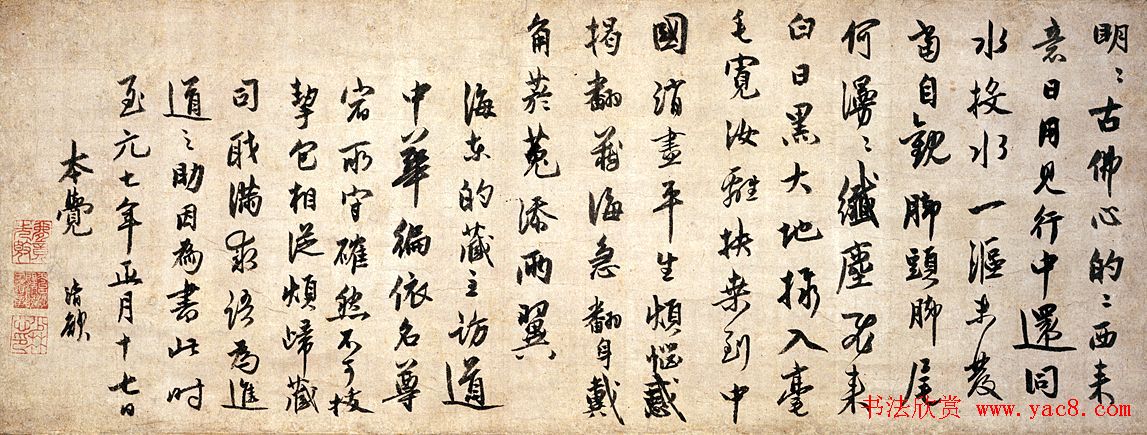 明〻古佛心的〻西来
意日用見行中還同
水投水一漚未發
當自觀脚頭脚尾
何漫〻纖塵飛来
白日黑大地揉入毫
毛寬汝離扶桒到中
國消盡平生煩惱惑
揭翻藏海急翻身戴
角於菟添兩翼
海東的藏主訪道
中華徧依名尊
宿所守確然不可拔
挈包相從煩歸藏
司職滿求語為進
道之助因為書此时
至元七年正月十七日
本覺 清欲
书法欣赏 www.yac8.com